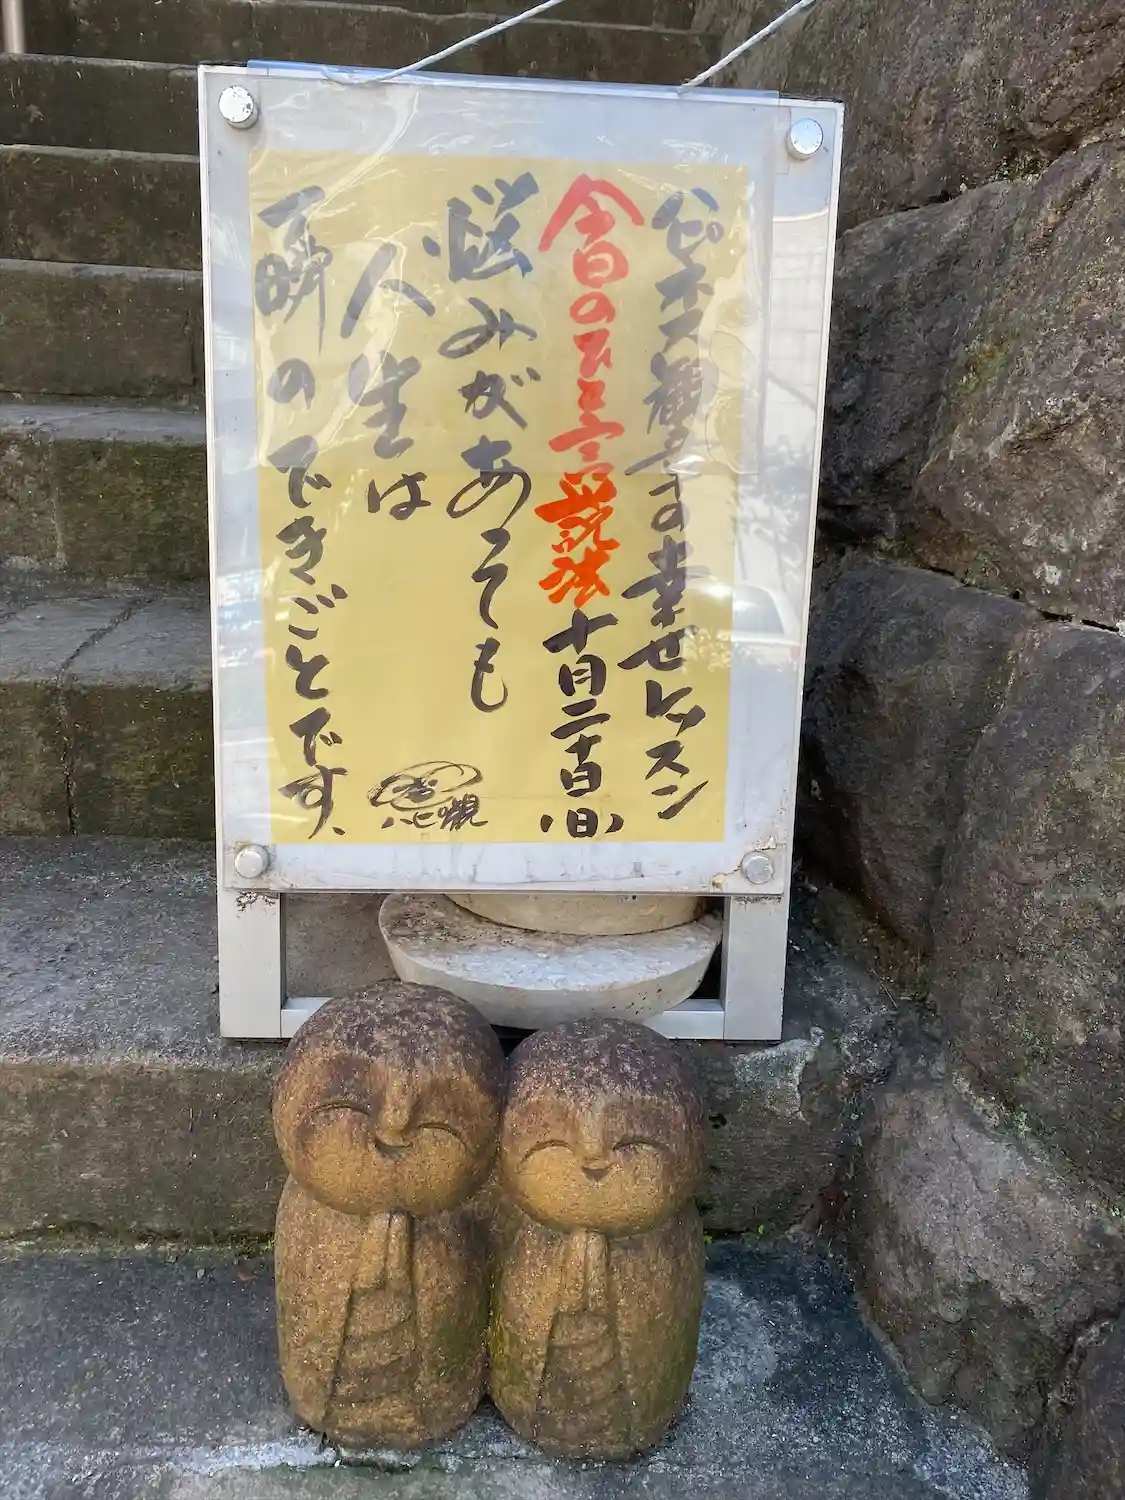 ハピネス観音の幸せレッスン
今日のひと言説法 十月二十日(日)
悩みがあっても
人生は
一瞬のできごとです、